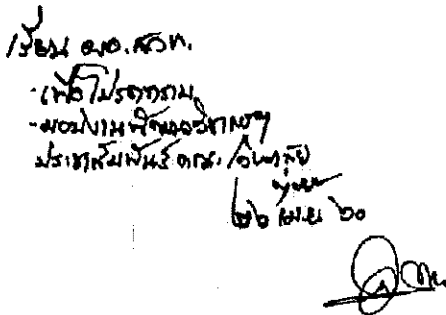 เรียน ผอ. สวท.
- เพื่อโปรดทราบ
- มอบงานพัฒนาวิชาการฯ
ประชาสัมพันธ์ คณะ/วิทยาลัย
๒๖ เม.ย ๖๐